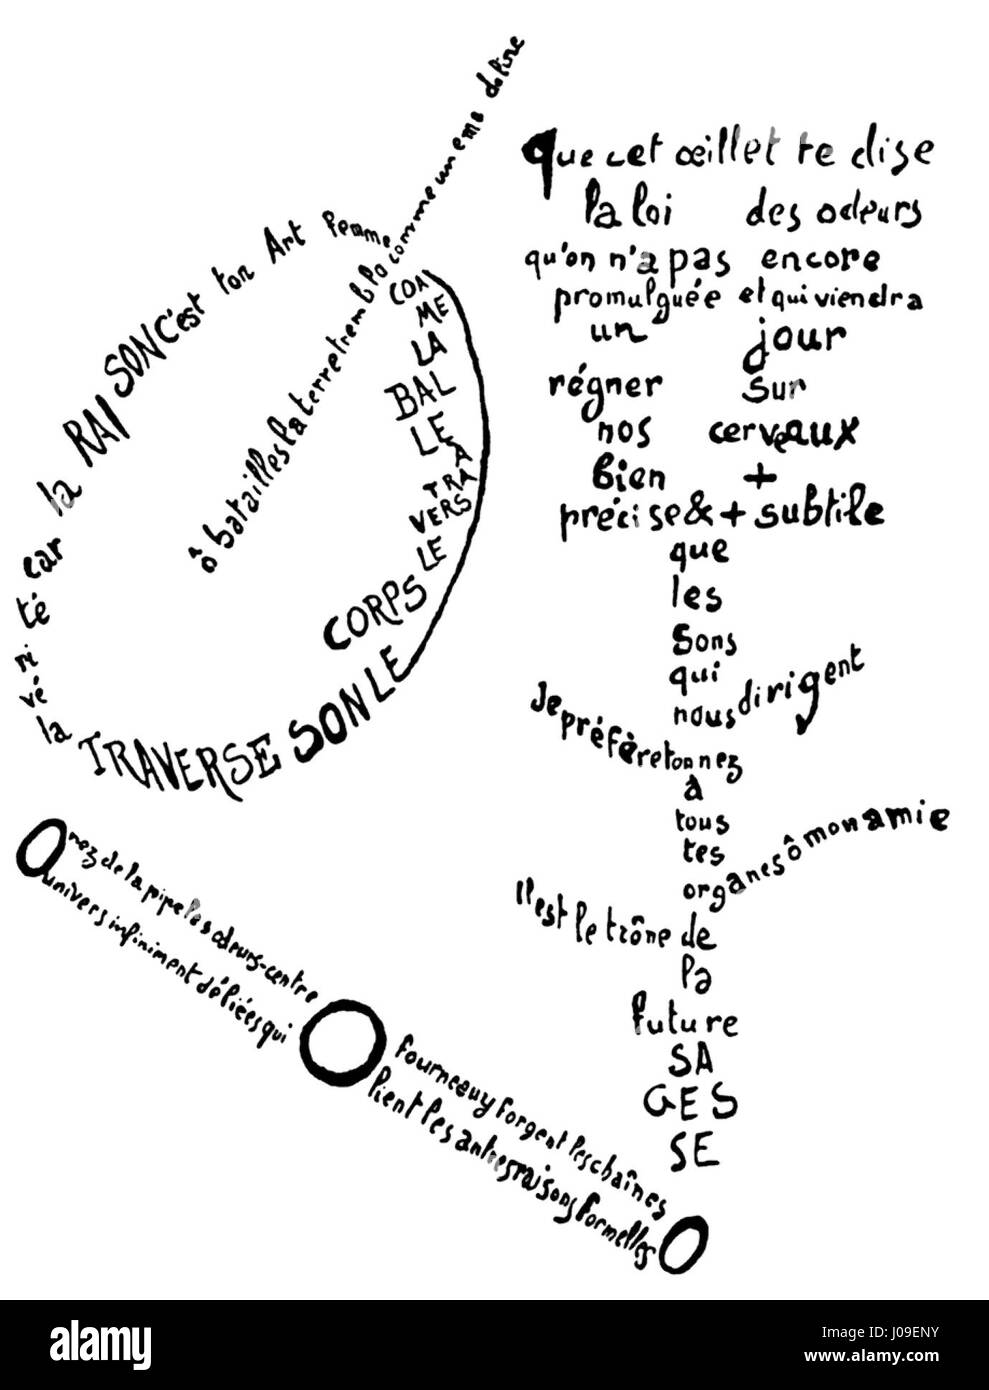 ô batailles la terre tremble comme une mandoline
COMME
LA
BAL
LE
À
TRA
VERS
LE
CORPS
LE SON TRAVERSE
la vé ri té car la RAISON C'est ton Art Femme
que cet œillet te dise
la loi des odeurs
qu'on n'a pas encore
promulguée et qui viendra
un jour
régner sur
nos cerveaux
bien +
précise & + subtile
que
les
sons
qui
nous dirigent
Je préfère ton nez
à
tous
tes
organes ô mon amie
Il est le trône de
la
future
SA
GES
SE
O nez de la pipe les odeurs-centre O fourneau y forgent les chaînes O
univers infiniment déliées qui lient les autres raisons formelles
alamy
Image ID: J09ENY
www.alamy.com